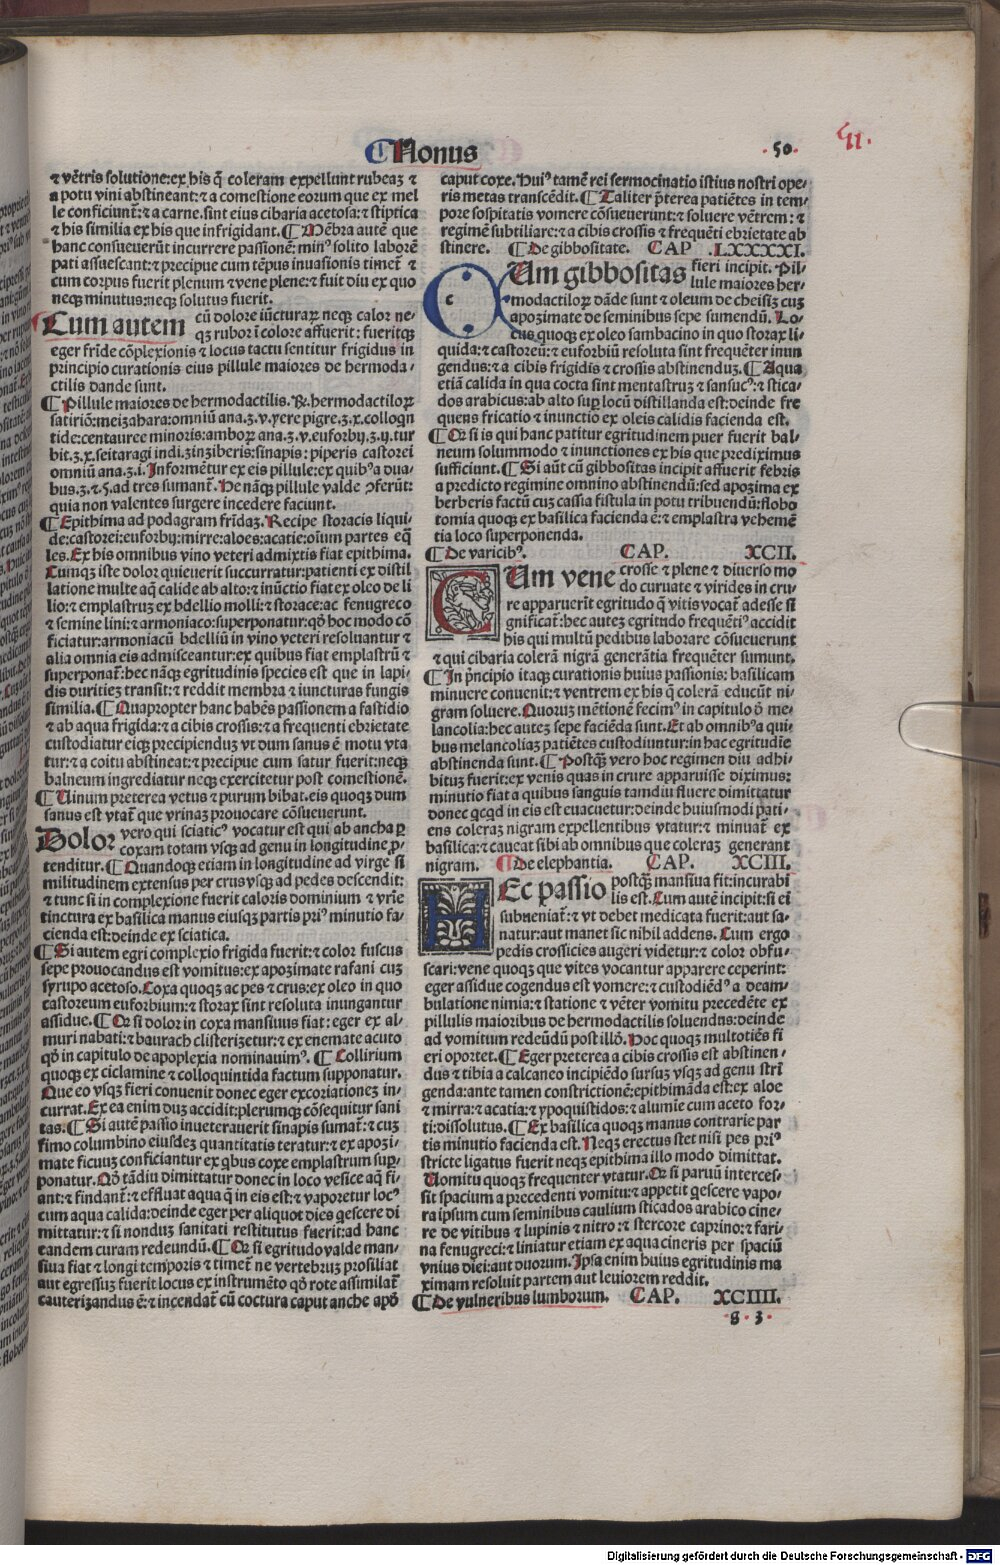 Nonus
50
⁊ vẽtris solutione:ex his q̃ coleram expellunt rubeaʒ ⁊
a potu vini abstineant:⁊ a comestione eorum que ex mel
le conficiunt̃:⁊ a carne.sint eius cibaria acetosa:⁊ stiptica
⁊ his similia ex his que infrigidant. ¶ Mẽbra autẽ que
hanc consueuerũt incurrere passionẽ:minꝰ solito laborẽ
pati assuescant:⁊ precipue cum tẽpus inuasionis timet̃ ⁊
cum corpus fuerit plenum ⁊ vene plene:⁊ fuit diu ex quo
neqʒ minutus:neqʒ solutus fuerit.
Cum autem cũ dolore iũcturaꝝ neqʒ calor ne-
qʒ rubor ĩ colore affuerit: fueritqʒ
eger fri᷑de cõplexionis ⁊ locus tactu sentitur frigidus in
principio curationis eius pillule maiores de hermoda-
ctilis dande sunt.
¶ Pillule maiores de hermodactilis. ℞. hermodactiloꝝ
satiriõ:meizahara:omniũ ana.ʒ.v.yere pigre.ʒ.x.colloqn
tide:centauree minoris:amboꝝ ana.ʒ.v.euforbij.ʒ.ij.tur
bit.ʒ.x.seitaragi indi.zinziberis:sinapis: piperis castorei
omniũ ana.ʒ.i. Informẽtur ex eis pillule:ex quibꝰ a dua-
bus.ʒ.⁊.5.ad tres sumant̃. He nãqʒ pillule valde ꝓferũt:
quia non valentes surgere incedere faciunt.
¶ Epithima ad podagram fri᷑daʒ. Recipe storacis liqui-
de:castorei:euforbij:mirre:aloes:acatie:oĩum partes eq̃
les. Ex his omnibus vino veteri admixtis fiat epithima.
Cumqʒ iste dolor quieuerit succurratur:patienti ex distil
latione multe aq̃ calide ab alto:⁊ inũctio fiat ex oleo de li
lio:⁊ emplastruʒ ex bdellio molli:⁊ storace:ac fenugreco
⁊ semine lini:⁊ armoniaco:superponatur:qď hoc modo cõ
ficiatur:armoniacũ bdelliũ in vino veteri resoluantur ⁊
alia omnia eis admisceantur:ex quibus fiat emplastrũ ⁊
superponat̃:hec nãqʒ egritudinis species est que in lapi-
dis duritieʒ transit:⁊ reddit membra ⁊ iuncturas fungis
similia. ¶ Quapropter hanc habẽs passionem a fastidio
⁊ ab aqua frigida:⁊ a cibis crossis:⁊ a frequenti ebrietate
custodiatur eiqʒ precipienduʒ vt dum sanus ẽ motu vta
tur:⁊ a coitu abstineat:⁊ precipue cum satur fuerit:neqʒ
balneum ingrediatur neqʒ exercitetur post comestionẽ.
¶ Uinum preterea vetus ⁊ purum bibat.eis quoqʒ dum
sanus est vtat̃ que vrinaʒ prouocare cõsueuerunt.
Dolor vero qui sciaticꝰ vocatur est qui ab ancha ꝑ
coxam totam vsqʒ ad genu in longitudine ꝓ-
tenditur. ¶ Quandoqʒ etiam in longitudine ad virge si
militudinem extensus per crus vsqʒ ad pedes descendit:
⁊ tunc si in complexione fuerit caloris dominium ⁊ vri᷑e
tinctura ex basilica manus eiusqʒ partis priꝰ minutio fa-
cienda est:deinde ex sciatica.
¶ Si autem egri complexio frigida fuerit:⁊ color fuscus
sepe prouocandus est vomitus:ex apoʒimate rafani cuʒ
syrupo acetoso. Coxa quoqʒ ac pes ⁊ crus:ex oleo in quo
castoreum euforbium:⁊ storax sint resoluta inungantur
assidue. ¶ Qr si dolor in coxa mansiuus fiat: eger ex al-
muri nabati:⁊ baurach clisterizetur:⁊ ex enemate acuto
qď in capitulo de apoplexia nominauimꝰ. ¶ Collirium
quoqʒ ex ciclamine ⁊ colloquintida factum supponatur.
Que eo vsqʒ fieri conuenit donec eger excoriationeʒ in-
currat. Ex ea enim duʒ accidit:plerumqʒ cõsequitur sani
tas. ¶ Si autẽ passio inueterauerit sinapis sumat̃:⁊ cuʒ
fimo columbino eiusdeʒ quantitatis teratur:⁊ ex apozi-
mate ficuuʒ conficiantur ex qbus coxe emplastrum suꝑ-
ponatur. Qď tãdiu dimittatur donec in loco vesice aq̃ fi-
ant:⁊ findant̃:⁊ effluat aqua q̃ in eis est:⁊ vaporetur locꝰ
cum aqua calida:deinde eger per aliquot dies q̃scere di
mittatur:⁊ si nonduʒ sanitati restitutus fuerit:ad hanc
eandem curam redeundũ. ¶ Qr si egritudo valde man-
siua fiat ⁊ longi temporis ⁊ timet̃ ne vertebruʒ prosiliat
aut egressuʒ fuerit locus ex instrumẽto qď rote assimilat̃
cauterizandus ẽ:⁊ incendat̃ cũ coctura caput anche apď
caput coxe. Huiꝰ tamẽ rei sermocinatio istius nostri ope-
ris metas transcẽdit. ¶ Taliter p̃terea patiẽtes in tem-
pore sospitatis vomere cõsueuerunt:⁊ soluere vẽtrem: ⁊
regimẽ subtiliare:⁊ a cibis crossis ⁊ frequẽti ebrietate ab
stinere. ¶ De gibbositate. CAP .LXXXXI.
QUm gibbositas fieri incipit. Pil-
lule maiores her-
modactiloꝝ dãde sunt ⁊ oleum de cheisiʒ cuʒ
apoʒimate de seminibus sepe sumendũ. Lo-
cus quoqʒ ex oleo sambacino in quo storax li-
quida:⁊ castoreũ:⁊ euforbiũ resoluta sint frequẽter inun
gendus:⁊ a cibis frigidis ⁊ crossis abstinenduʒ. ¶ Aqua
etiã calida in qua cocta sint mentastruʒ ⁊ sansucꝰ:⁊ stica-
dos arabicus:ab alto suꝑ locũ distillanda est:deinde fre
quens fricatio ⁊ inunctio ex oleis calidis facienda est.
¶ Qr si is qui hanc patitur egritudinem puer fuerit bal-
neum solummodo ⁊ inunctiones ex his que prediximus
sufficiunt. ¶ Si aũt cũ gibbositas incipit affuerit febris
a predicto regimine omnino abstinendũ:sed apozima ex
berberis factũ cuʒ cassia fistula in potu tribuendũ:flobo
tomia quoqʒ ex basilica facienda ẽ:⁊ emplastra vehemẽ
tia loco superponenda.
¶ De varicibꝰ. CAP. XCII.
CUm vene crosse ⁊ plene ⁊ diuerso mo
do curuate ⁊ virides in cru-
re apparuerĩt egritudo q̃ vitis vocat̃ adesse si
gnificat̃:hec auteʒ egritudo frequẽtiꝰ accidit
his qui multũ pedibus laborare cõsueuerunt
⁊ qui cibaria colerã nigrã generãtia frequẽter sumunt.
¶ In p̃ncipio itaqʒ curationis huius passionis: basilicam
minuere conuenit:⁊ ventrem ex his q̃ colerã educũt ni-
gram soluere. Quoruʒ mẽtionẽ fecimꝰ in capitulo ď me-
lancolia:hec autez sepe faciẽda sunt. Et ab omnibꝰ a qui-
bus melancoliaʒ patiẽtes custodiuntur:in hac egritudi᷑e
abstinenda sunt. ¶ Postqʒ vero hoc regimen diu adhi-
bituʒ fuerit:ex venis quas in crure apparuisse diximus:
minutio fiat a quibus sanguis tamdiu fluere dimittatur
donec qcqd in eis est euacuetur:deinde huiusmodi pati-
ens coleraʒ nigram expellentibus vtatur:⁊ minuat̃ ex
basilica:⁊ caueat sibi ab omnibus que coleraʒ generant
nigram. ¶ De elephantia. CAP. XCIII.
HEc passio postqʒ mansiua fit:incurabi
lis est. Cum autẽ incipit:si ei
subueniat̃:⁊ vt debet medicata fuerit:aut sa-
natur:aut manet sic nihil addens. Cum ergo
pedis crossicies augeri videtur:⁊ color obfu-
scari:vene quoqʒ que vites vocantur apparere ceperint:
eger assidue cogendus est vomere:⁊ custodiẽdꝰ a deam-
bulatione nimia:⁊ statione ⁊ vẽter vomitu precedẽte ex
pillulis maioribus de hermodactilis soluendus:deinde
ad vomitum redeũdũ post illõ. Hoc quoqʒ multotiẽs fi
eri oportet. ¶ Eger preterea a cibis crossis est abstinen-
dus ⁊ tibia a calcaneo incipiẽdo sursuʒ vsqʒ ad genu stri
genda:ante tamen constrictionẽ:epithimãda est:ex aloe
⁊ mirra:⁊ acatia:⁊ ypoquistidos:⁊ alumi᷑e cum aceto for-
ti:dissolutus. ¶ Ex basilica quoqʒ manus contrarie par
tis minutio facienda est. Neqʒ erectus stet nisi pes priꝰ
stricte ligatus fuerit neqʒ epithima illo modo dimittat.
Uomitu quoqʒ frequenter vtatur. Qr si paruũ interces-
sit spacium a precedenti vomitu:⁊ appetit q̃scere vapo-
ra ipsum cum seminibus caulium sticados arabico cine-
re de vitibus ⁊ lupinis ⁊ nitro:⁊ stercore caprino:⁊ fari-
na fenugreci:⁊ liniatur etiam ex aqua cineris per spaciũ
vnius diei:aut duorum. Ipsa enim huius egritudinis ma
ximam resoluit partem aut leuiorem reddit.
¶ De vulneribus lumborum. CAP. XCIIII.
g 3
Digitalisierung gefördert durch die Deutsche Forschungsgemeinschaft - DFG